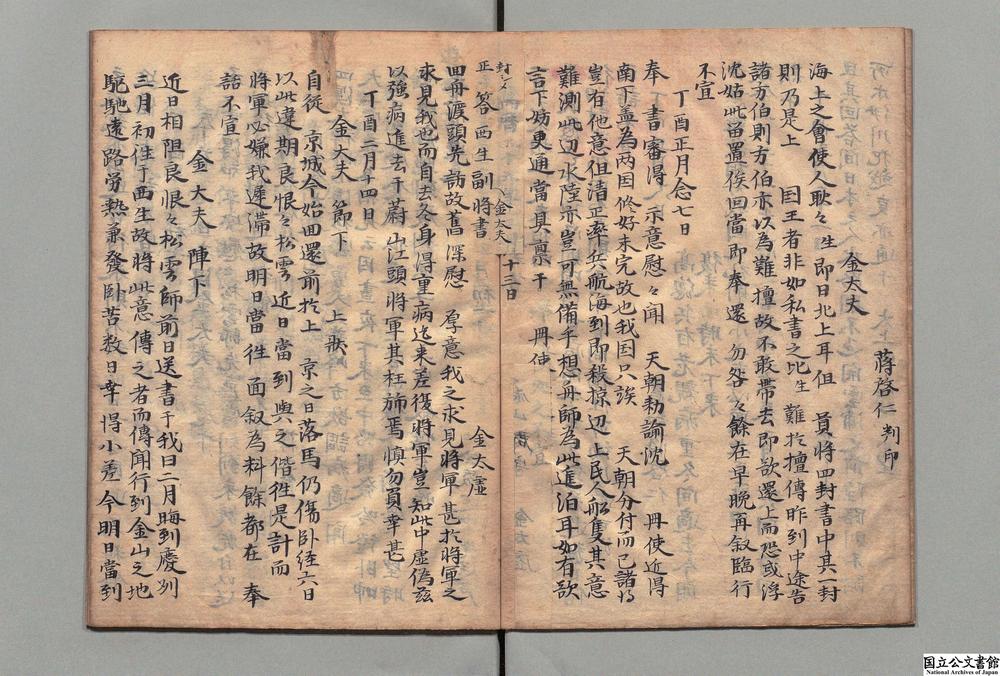 蔣啓仁 判印
金太夫
海上之會使人耿々生即日北上耳但 員將四封書中其一封
則乃是上 国王者非如私書之比生難扵擅傳昨到中途告
諸方伯則方伯亦以為難擅故不敢帶去即欲還上而恐或浮
沈姑此留置俟回當即奉還 勿咎々餘在早晚再叙臨行
不宣
丁酉正月念七日
奉 書審淂 示意慰々聞 天朝勅諭沈 冊使近淂
南下盖為两囯修好未完故也我囯只誒 天朝分付而已諸将
豈有他意但清正率兵航海到即殺掠辺上民人舩隻其意
難測此辺水陸亦豈可無備乎想舟師為此進泊耳如有欲
言下妨更通當具禀于 冊使
十三日
封シ
正 答西生副將書 金太夫
金太虛
回舟渡頭先訪故舊深慰 厚意我之求見將軍甚扵將軍之
求見我也而自去冬身得重病迄未差復將軍豈知此中虛偽茲
以強病進去千蔚山江頭將軍其枉斾焉慎勿負幸甚
丁酉二月十四日
金太夫 節下 上狀
自從 京城今始回還前扵上 京之日落馬仍傷卧经六日
以此違期良恨々松雲近日當到與之偕徃是計而
將軍必嫌我遲滯故明日當徃 面叙為料餘都在 奉
話不宣
金太夫 陣下
近日相阻良恨々松雲師前日送書于我曰二月晦到慶州
三月初徃于西生故將此意傳之者而傳聞行到金山之地
駈馳遠路勞熱兼發卧苦数日幸淂小差今明日當到
国立公文書館
National Archives of Japan